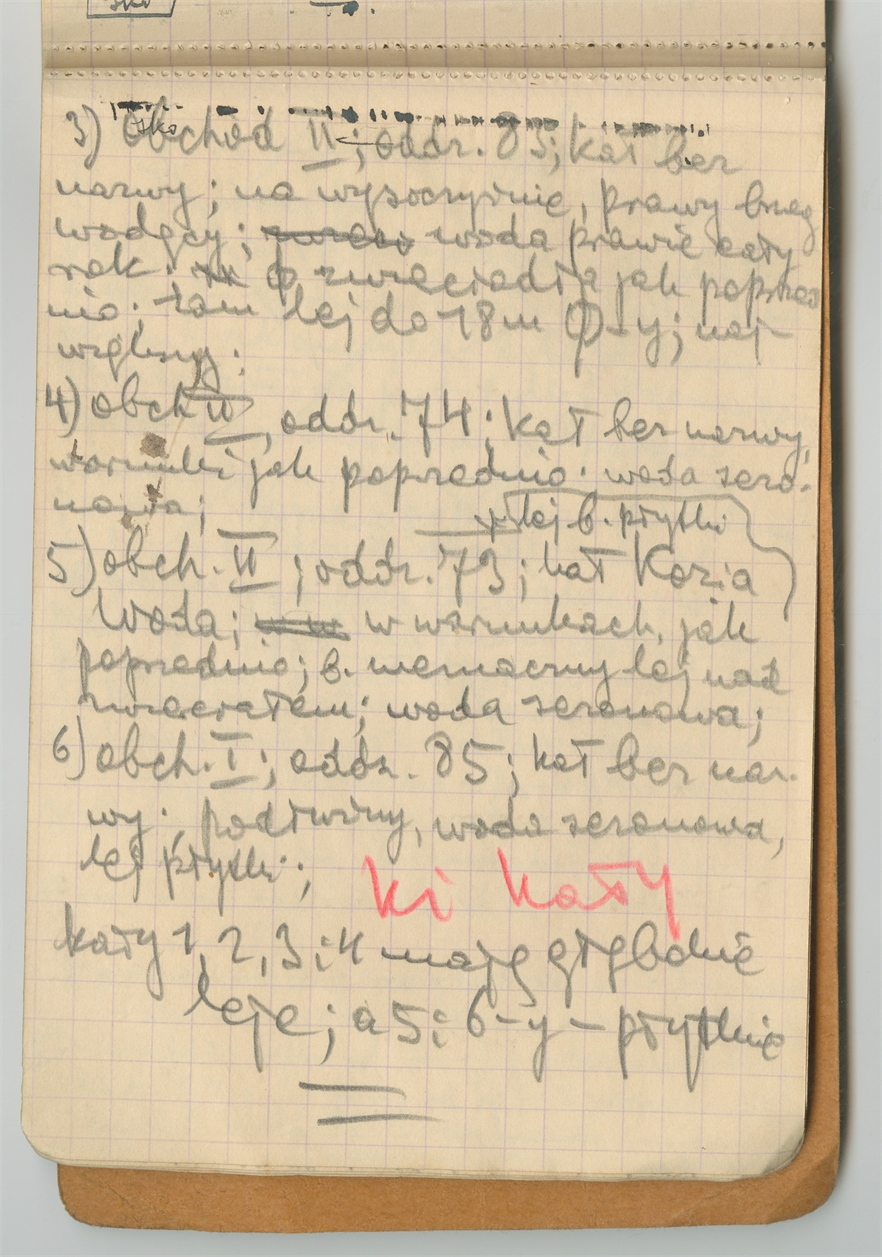 3) Obchód II; oddz. 83; kąt bez
nazwy; na wysoczyźnie, prawy brzeg
wodący; woda prawie cały
rok. φ zwierciadła jak poprzed
nio; tam lej do 18 m φ-y; naj-
większy;
4) obch II, oddz. 74; kąt bez nazwy,
warunki jak poprzednio. woda sezo-
nowa;
lej b. płytki
5) obch. II; oddz. 73; kąt Kozia
Woda; w warunkach, jak
poprzednio; b. nieznaczny lej nad
zwierciadłem; woda sezonowa;
6) obch. I; oddz. 85; kąt bez naz-
wy; podłużny, woda sezonowa,
lej płytki;
ki kąty
kąty 1, 2, 3 i 4 mają głębokie
leje; a 5 i 6-y – płytkie